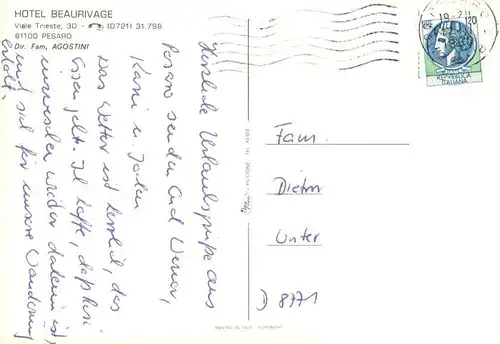 HOTEL BEAURIVAGE
Viale Trieste, 30 - (0721) 31.796
61100 PESARO
Dir. Fam. AGOSTINI
Herzliche Urlaubsgrüße aus
Pesaro senden Euch Werner,
Karin u.
Das Wetter ist herrlich, das
Essen geht. Ich hoffe, daß
inzwischen wieder daheim ist,
und sich für unsere Wanderung
erholt.
Fam.
Dietm
Unter
D 8771
120
REPUBBLICA
ITALIANA
PRINTED IN ITALY COPYRIGHT